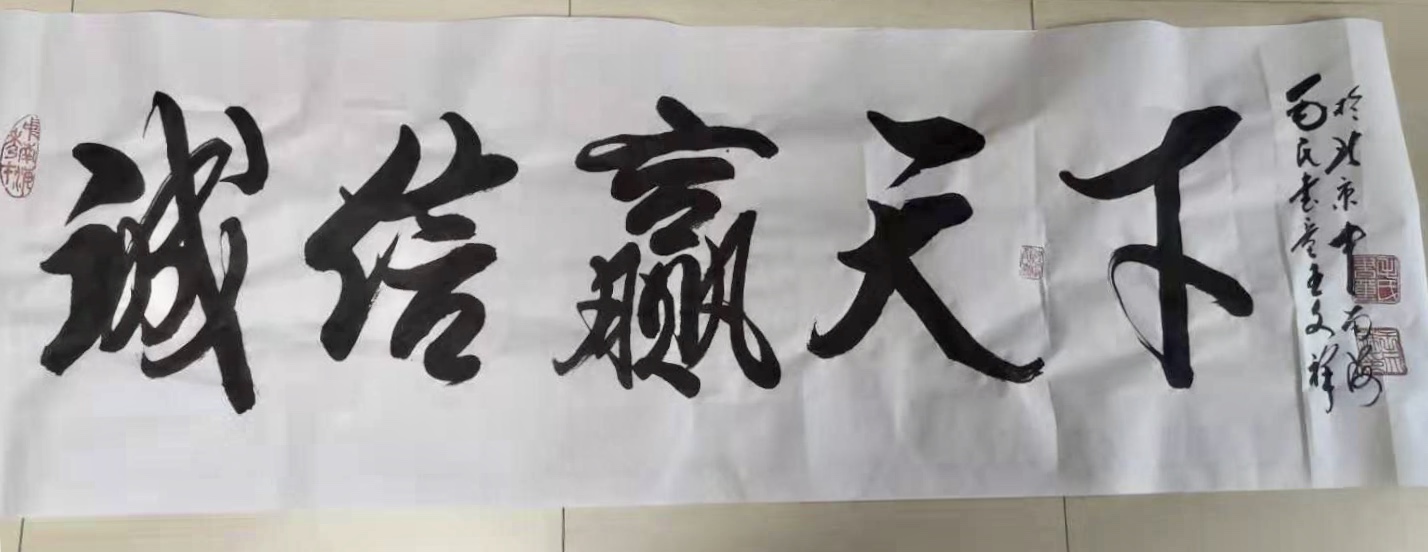 诚信赢天下
于北京中南海
书童王文祥